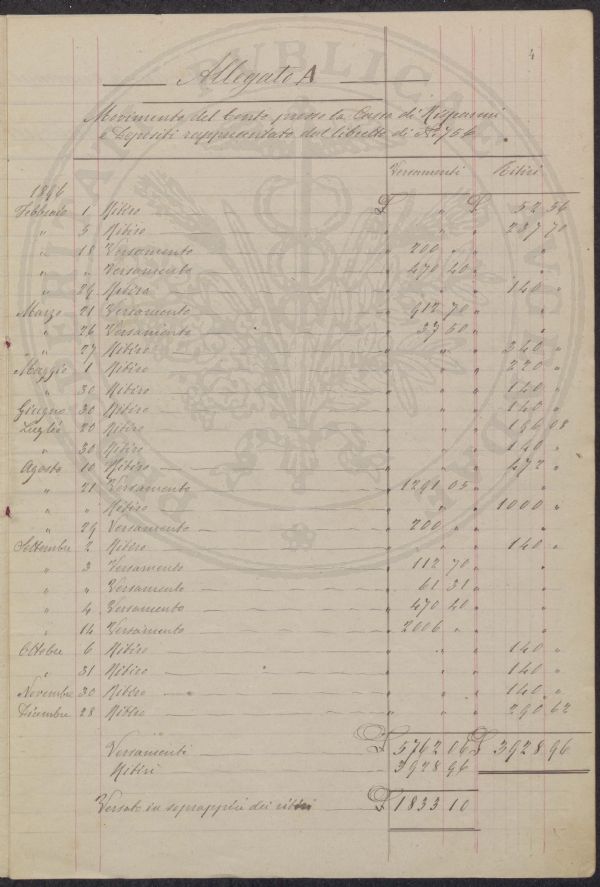 4
Allegato A
Movimento del Conto presso la Cassa di Risparmi
e Depositi rappresentato dal libretto di N. 756
Versamenti Ritiri
1896
Febbraio 1 Ritiro £ " " £ 52 56
" 5 Ritiro " " " 237 70
" 18 Versamento " 200 " " "
" " Versamento " 470 40 " "
" 29 Ritiro " " " 140 "
Marzo 21 Versamento " 912 70 " "
" 26 Versamento " 37 50 " "
" 27 Ritiro " " " 340 "
Maggio 1 Ritiro " " " 220 "
" 30 Ritiro " " " 140 "
Giugno 30 Ritiro " " " 140 "
Luglio 20 Ritiro " " " 196 08
" 30 Ritiro " " " 140 "
Agosto 10 Ritiro " " " 472 "
" 21 Versamento " 1291 05 " "
" " Ritiro " " " 1000 "
" 29 Versamento " 200 " " "
Settembre 2 Ritiro " " " 140 "
" 3 Versamento " 112 70 " "
" " Versamento " 61 31 " "
" 4 Versamento " 470 40 " "
" 14 Versamento " 2006 " " "
Ottobre 6 Ritiro " " " 140 "
" 31 Ritiro " " " 140 "
Novembre 30 Ritiro " " " 140 "
Dicembre 28 Ritiro " " " 290 62
Versamenti £ 5762 06 £ 3928 96
Ritiri 3928 96
Versate in soprappiù dei ritiri £ 1833 10